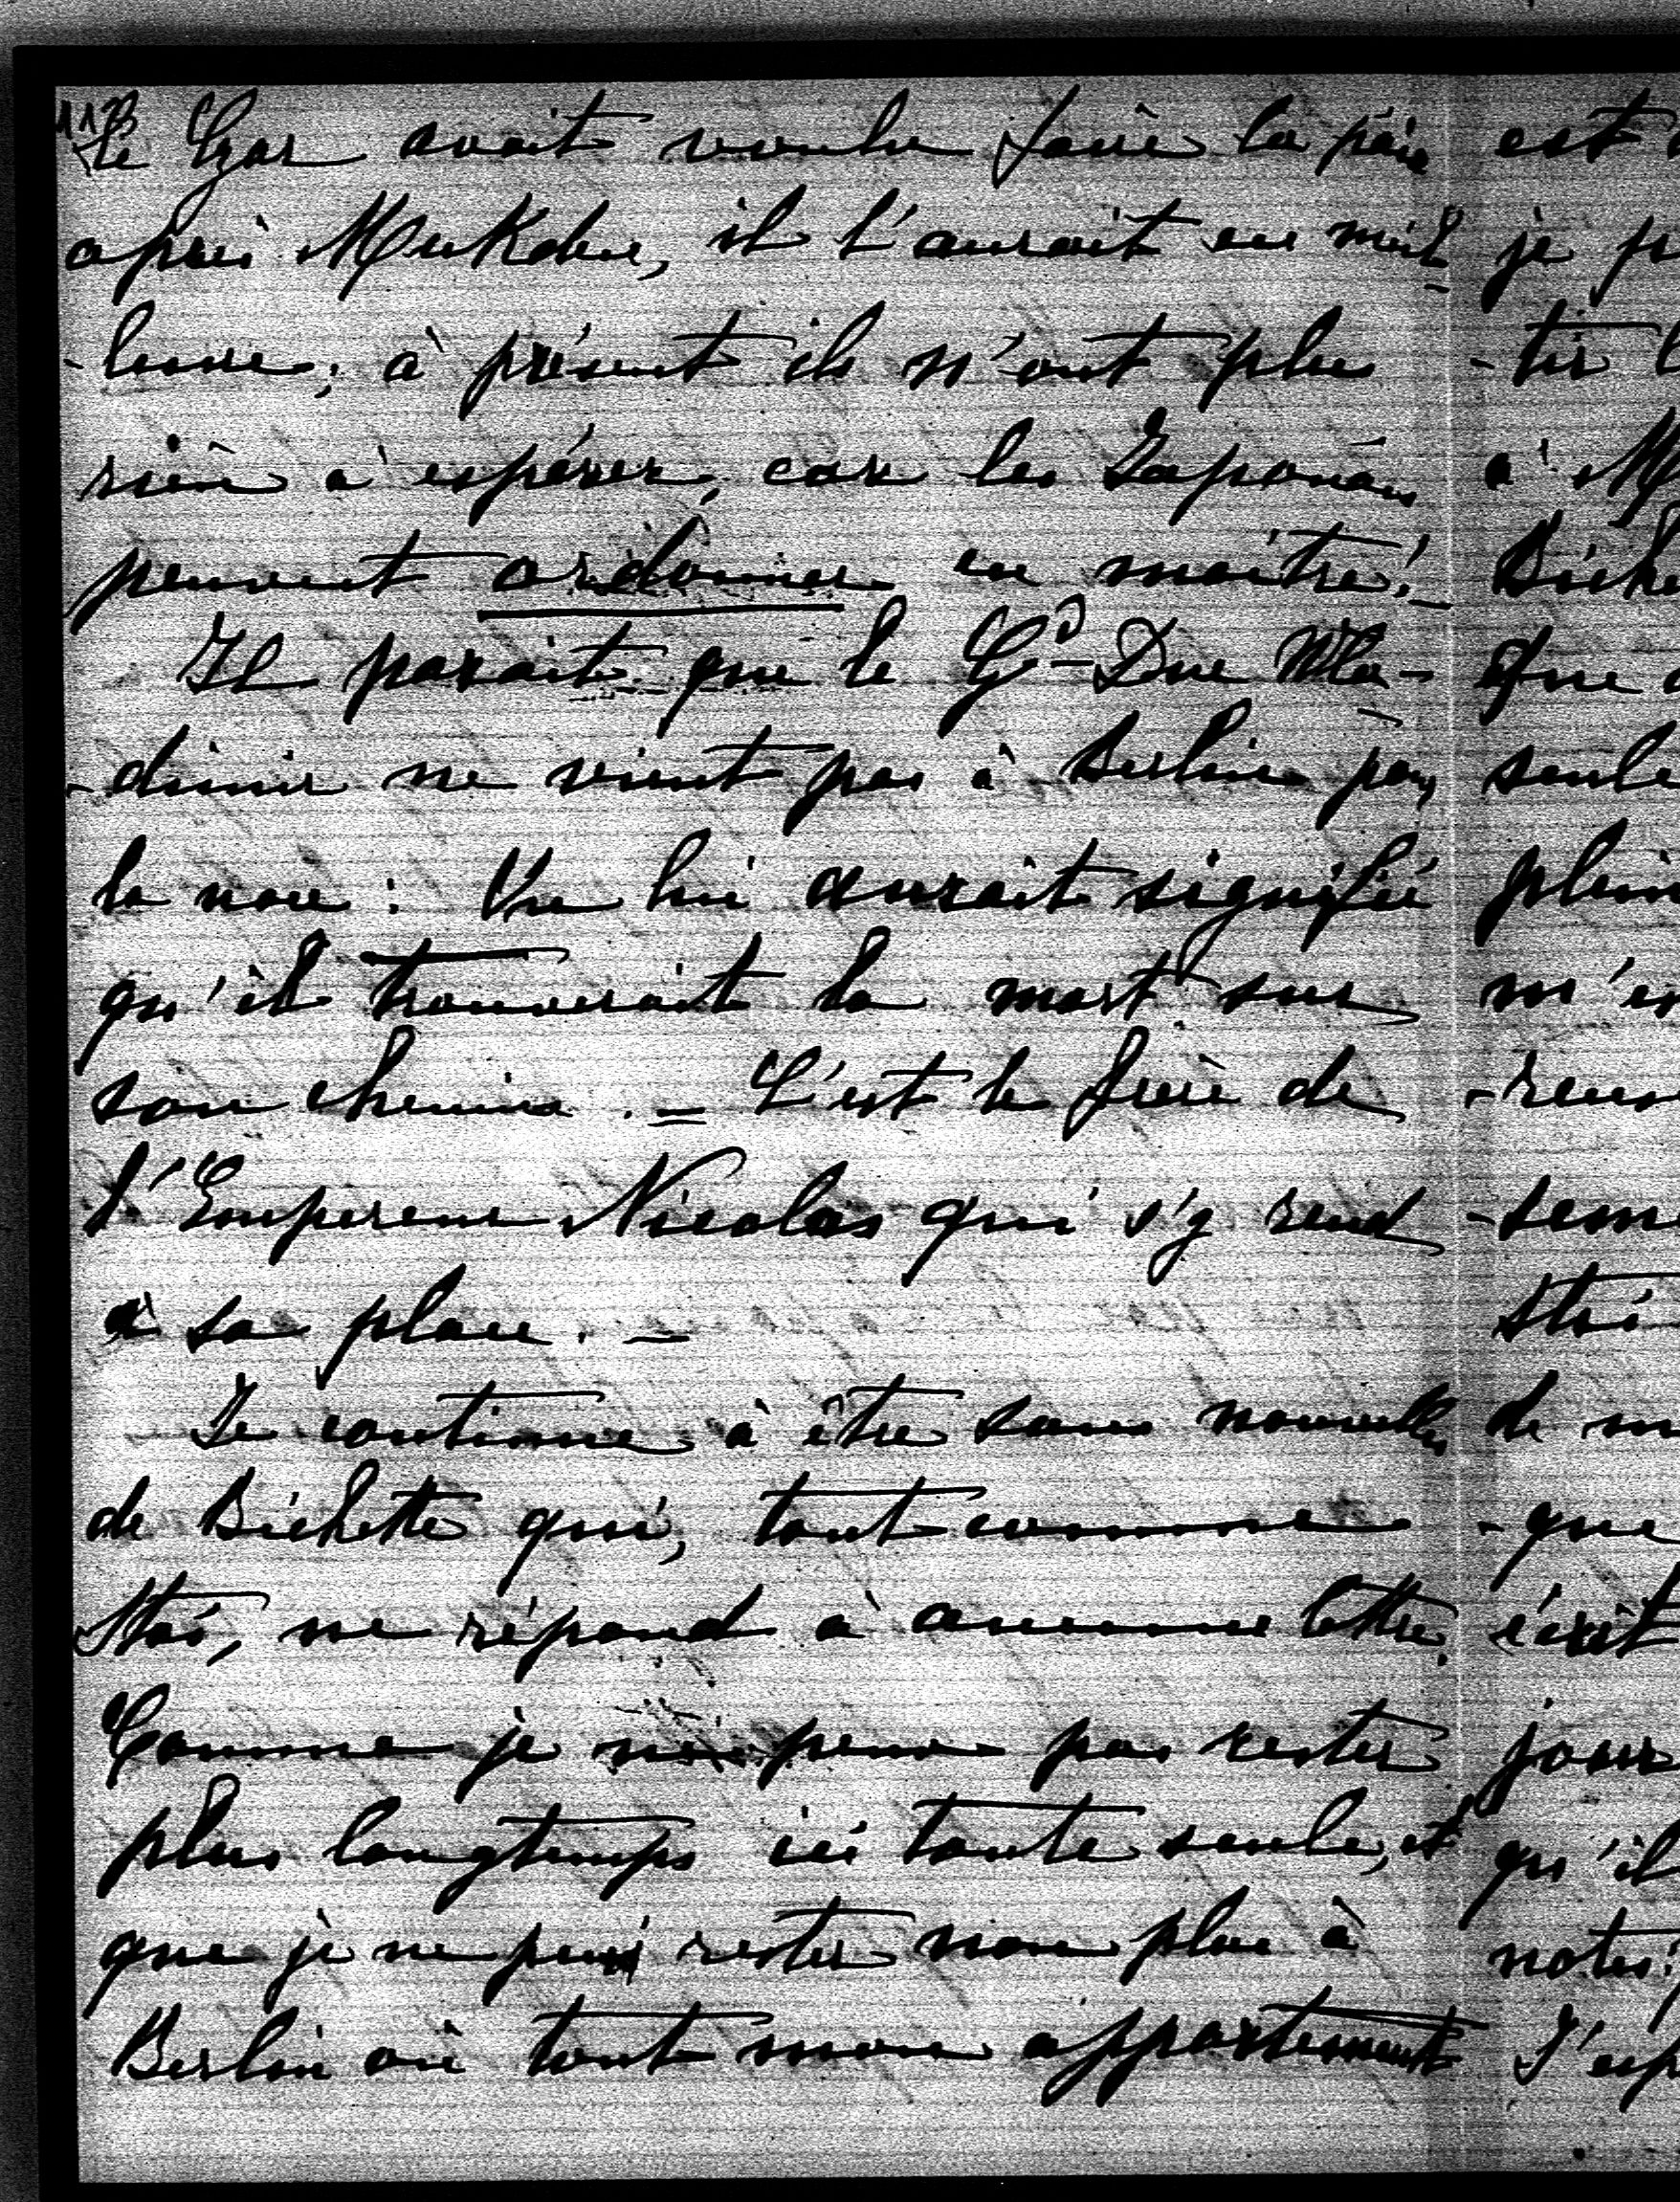 1123
le Czar avait voulu faire la paix
après Mukden, il l'aurait eu meil-
-leure; à présent ils n'ont plus
rien à espérer, car les Japonais
peuvent ordonner en maître! -
Il parait que le Gd-Duc Wla-
-dimir ne vient pas à Berlin pour
la noce: On lui aurait signifié
qu'il trouverait la mort sur
son chemin. = C'est le frère de
l'Empereur Nicolas qui s'y rend
à sa place. -
Je continue à être sans nouvelles
de Bichette qui, tout comme
Stas, ne répond à aucune lettre.
Comme je ne peux pas rester
plus longtemps ici toute seule, et
que je ne peux rester non plus à
Berlin où tout mon appartement
est
je
-tir
à
que
seule
m'
-sem
de
-que
écrit
jour
qu'il
notes